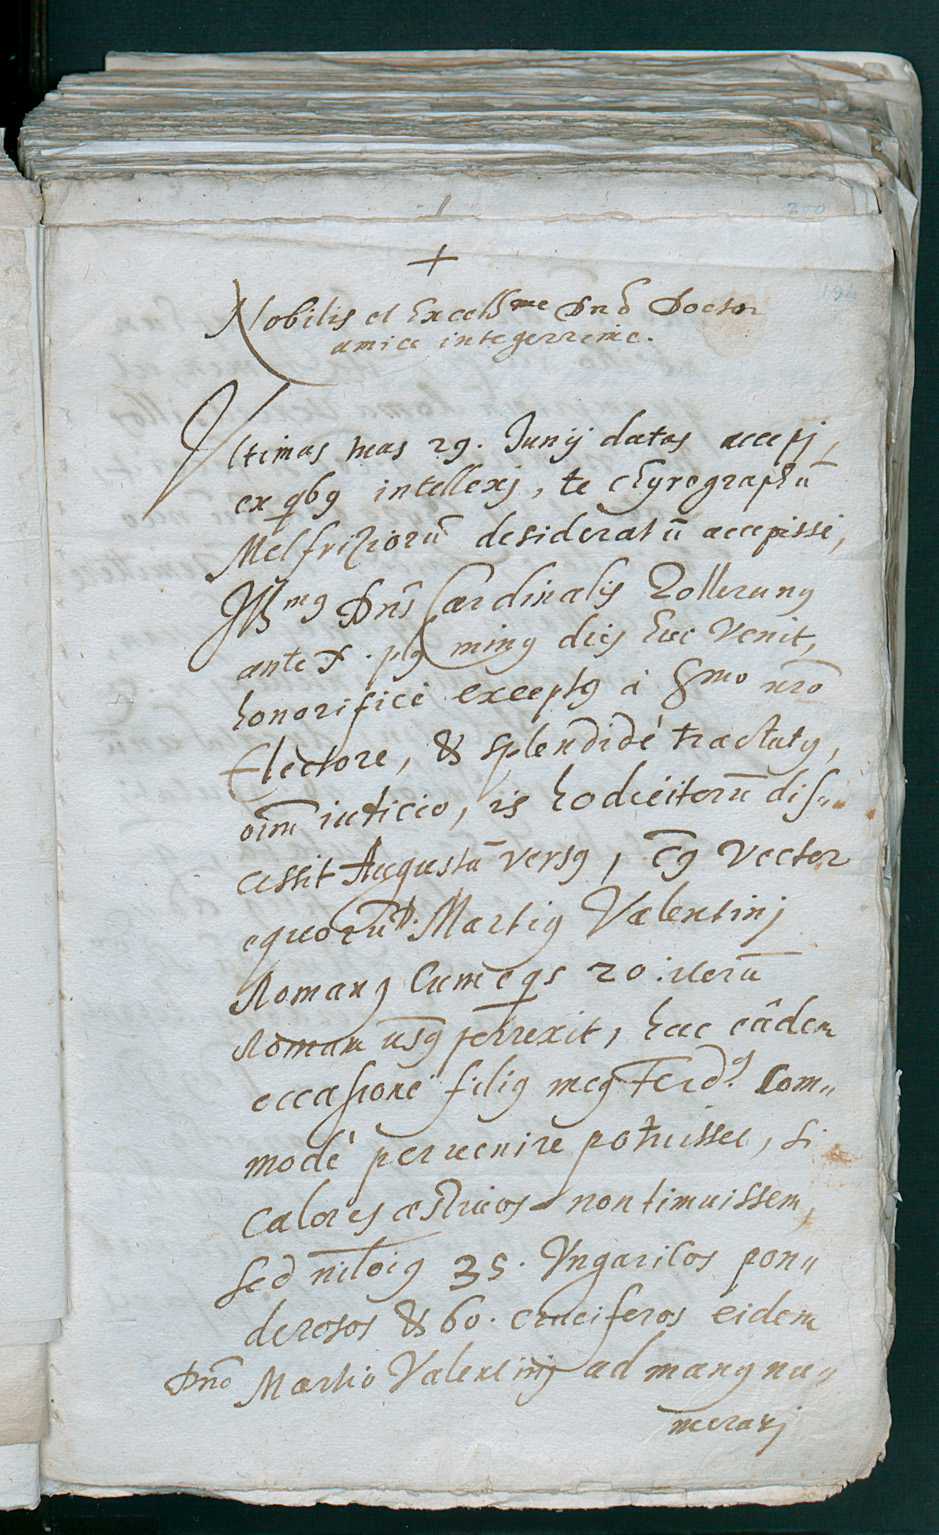 200
+
194
Nobilis et Excellme Dnē Doctor
amice integerrime.
Vltimas tuas 29. Junij datas accepj,
ex qbꝫ intellexj, te chyrographū
desideratū accepisse,
Illmꝰ Dns̄ Cardinalis Zolleranꝰ
ante dies huc venit,
honorificè exceptꝰ à Smo nrō
Electore, & splendidè tractatꝰ,
oīm iudicio, is hodie iterū dis„
cessit Augustā versꝰ, eiꝰ vector
equorū D. Martiꝰ Valentinj
Romanꝰ cum eqs 20 iterū
Romam usq perrexit, hac eâdem
occasione filiꝰ meꝰ Ferdꝰ. com„
modè peruenire potuisset, si
calores æstiuos non timuissem,
sed nihloiꝰ 35. Vngaricos pon„
derosos & 60. cruciferos eidem
Dnō Martio Valentinj ad manꝰ nu„
merarj